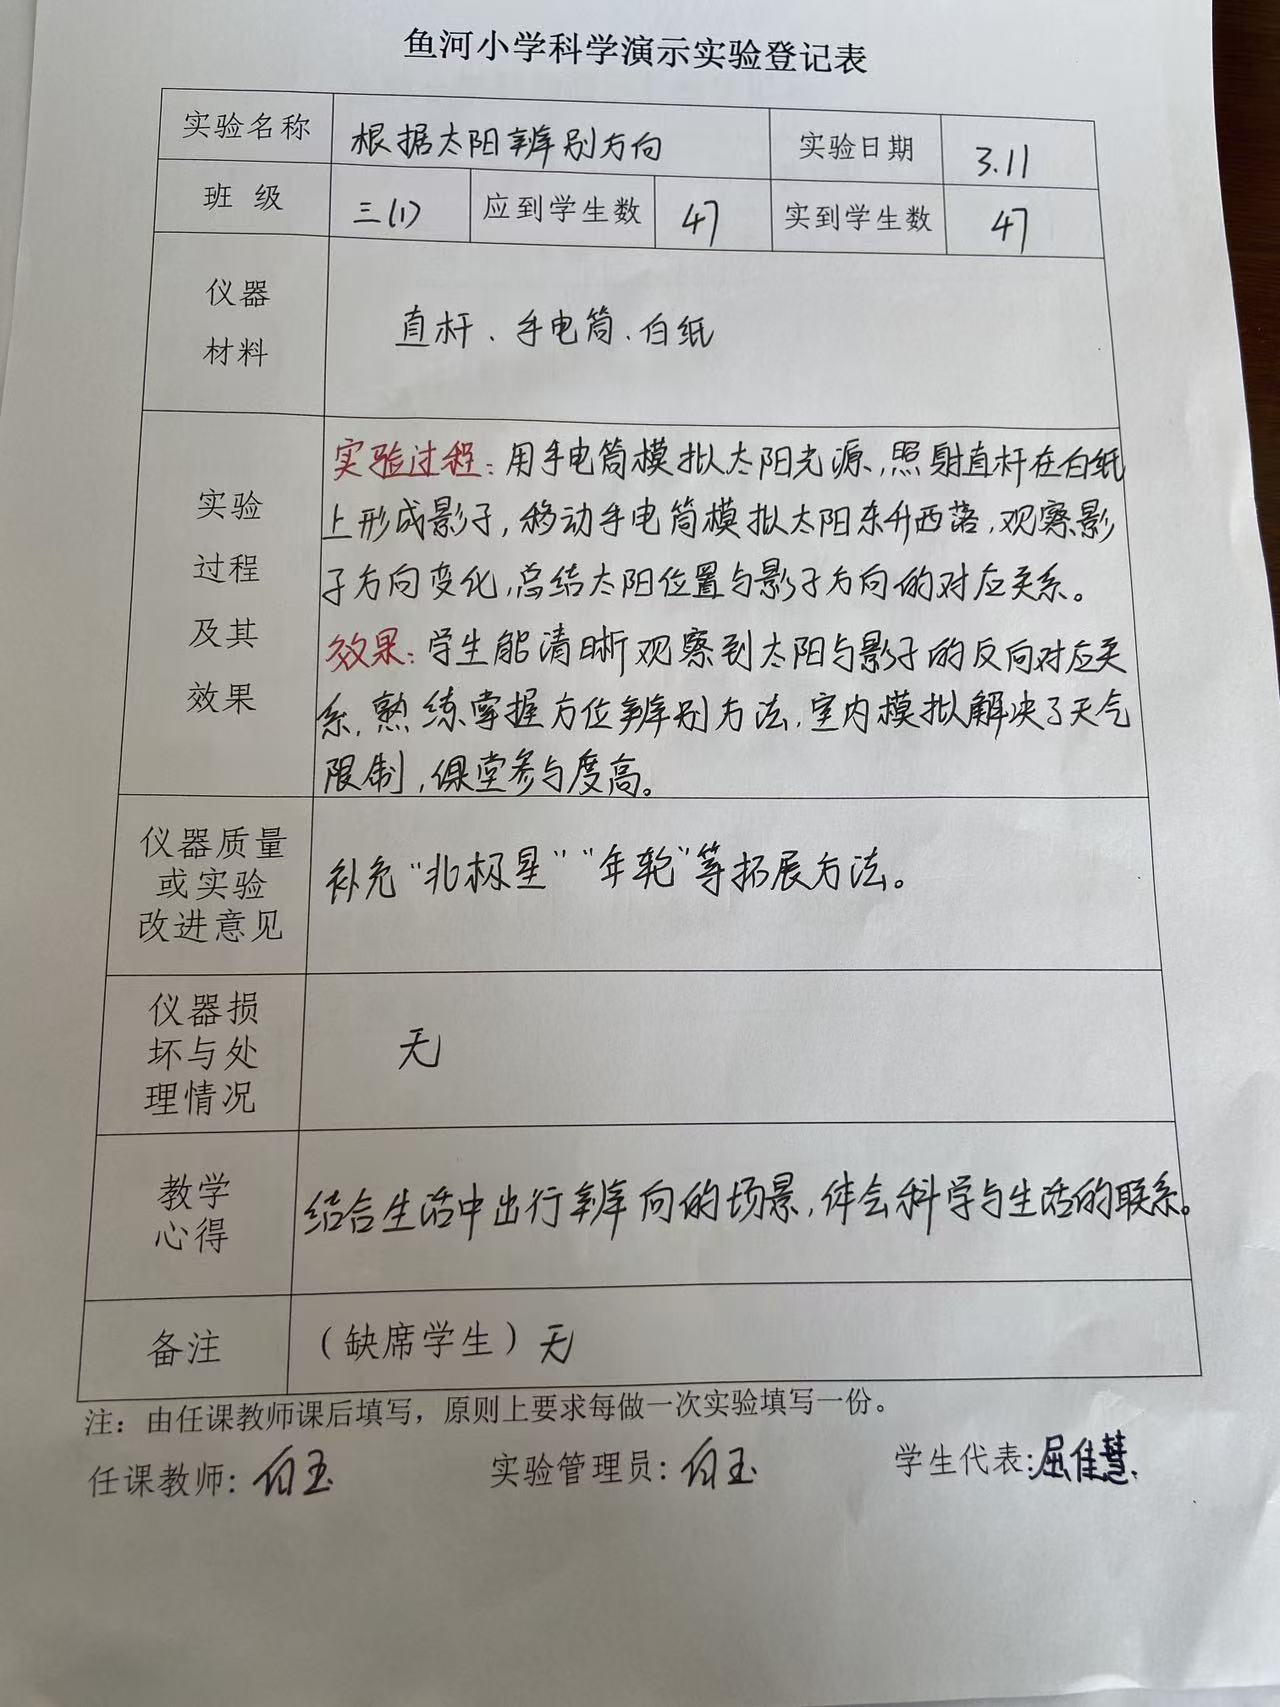 鱼河小学科学演示实验登记表
实验名称 根据太阳辨别方向 实验日期 3.11
班 级 三(1) 应到学生数 47 实到学生数 47
仪器
材料
直杆、手电筒、白纸
实验
过程
及其
效果
实验过程:用手电筒模拟太阳光源,照射直杆在白纸
上形成影子,移动手电筒模拟太阳东升西落,观察影
子方向变化,总结太阳位置与影子方向的对应关系。
效果:学生能清晰观察到太阳与影子的反向对应关
系,熟练掌握方位辨别方法,室内模拟解决了天气
限制,课堂参与度高。
仪器质量
或实验
改进意见
补充“北极星”“年轮”等拓展方法。
仪器损
坏与处
理情况
无
教学
心得
结合生活中出行辨向的场景,体会科学与生活的联系。
备注 (缺席学生)无
注:由任课教师课后填写,原则上要求每做一次实验填写一份。
任课教师:白玉 实验管理员:白玉 学生代表:屈佳慧